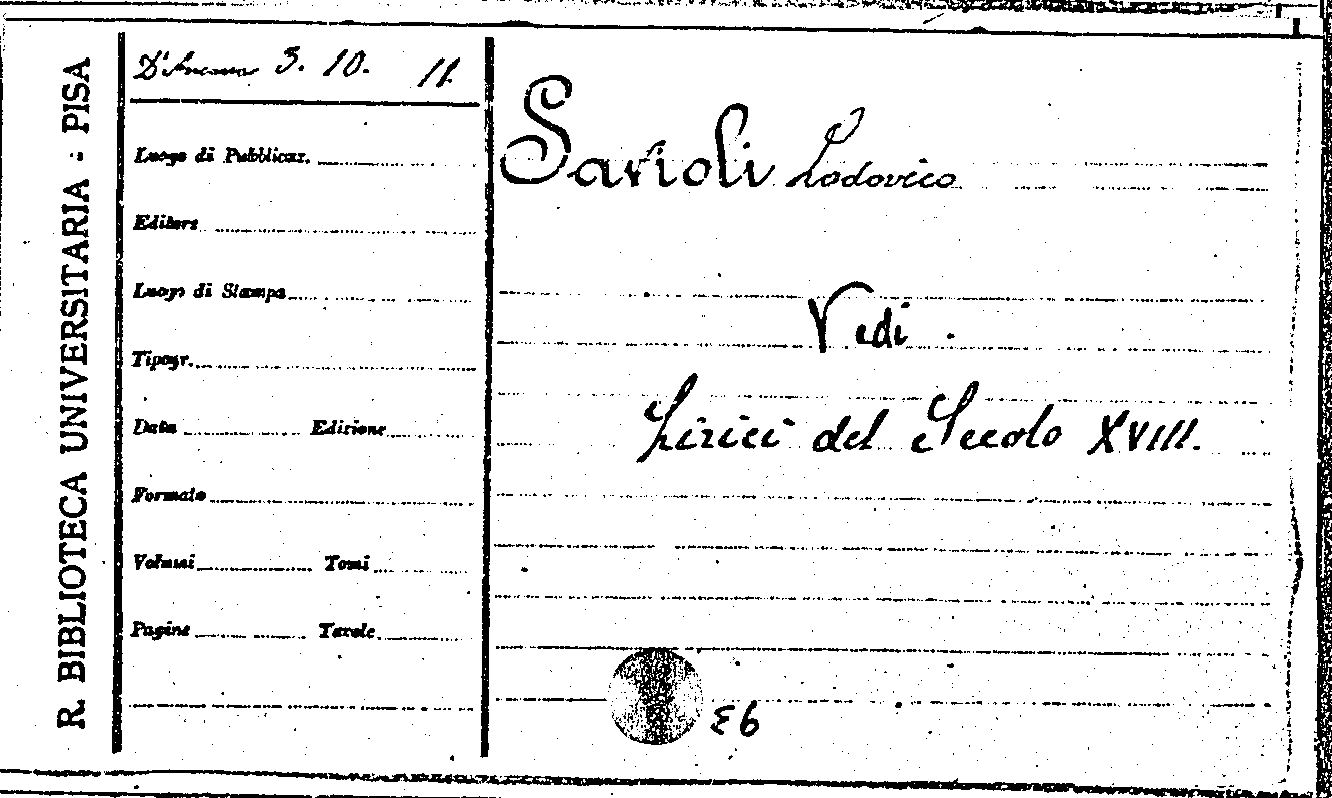 R. BIBLIOTECA UNIVERSITARIA - PISA
D'Ancona 3. 10. 11
Luogo di Pubblicaz.
Editore
Luogo di Stampa
Tipogr.
Data Edizione
Formato
Volumi Tomi
Pagine Tavole
Savioli Lodovico
Vedi.
Lirici del Secolo XVIII.
E6